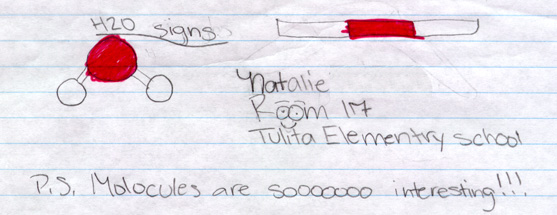 H20 signs
Natalie
Room 17
Tulita Elementry school
P.S. Molocules are soooooooo interesting!!!